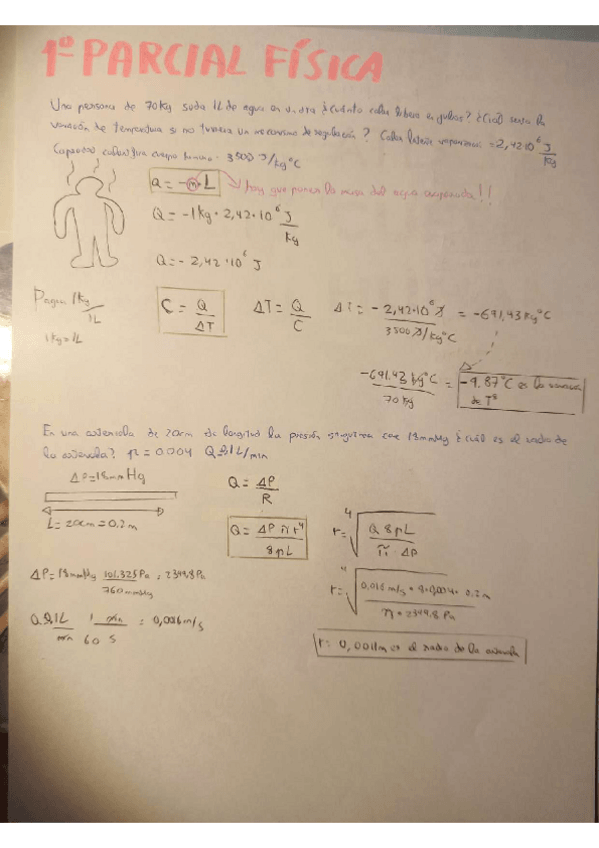 1º PARCIAL FÍSICA
Una persona de 70Kg suda 1L de agua en un día ¿Cuánto calor libera en julios? ¿Cuál sería la
variación de temperatura si no tuviera un mecanismo de regulación? Calor latente vaporización = 2,42·10⁶ J/Kg
Capacidad calorífica cuerpo humano = 3500 J/Kg°C
Q = -m·L → hay que poner la masa del agua evaporada!!
Q = -1Kg · 2,42·10⁶ J/Kg
Q = - 2,42·10⁶ J
1Kg/1L
1Kg = 1L
C = Q/ΔT
ΔT = Q/C
ΔT = - 2,42·10⁶ J / 3500 J/Kg°C = -691,43 Kg°C
-691,43 Kg°C / 70Kg = -9.87°C es la variación de Tª
En una arteriola de 20cm de longitud la presión sanguínea cae 18mmHg ¿cuál es el radio de
la arteriola? 0.004 L/min
ΔP=18mmHg
L= 20cm = 0.2m
Q = ΔP/R
Q = ΔP π r⁴ / 8 μ L
r = ⁴√ Q 8 μ L / π ΔP
ΔP = 18mmHg 101.325 Pa / 760mmHg = 2399,8 Pa
L/min 1 min / 60 s = m/s
r = ⁴√ m/s · 8 · 0.2m / π · 2399,8 Pa
r = m es el radio de la arteriola